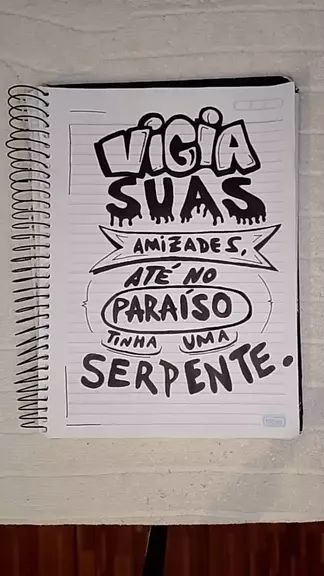 VIGIA
SUAS
AMIZADES,
ATÉ NO
PARAÍSO
TINHA UMA
SERPENTE.